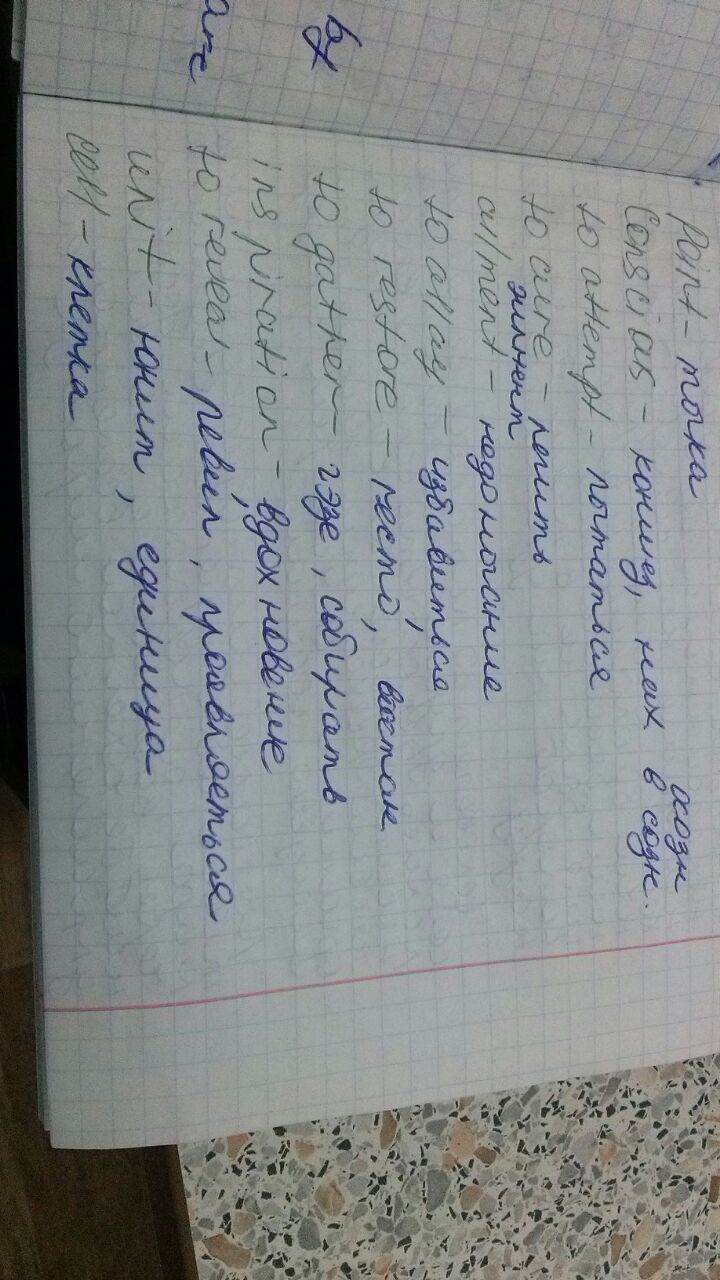 Point - точка
осозн
Conscious - коншез, нах в созн.
to attempt - пытаться
to cure - лечить
эилмент
ailment - недомогание
to allay - избавиться
to restore - ресто, восстан
to gather - гэзе, собирать
inspiration - вдохновение
to reveal - ревил, проявляеться
unit - юнит, единица
cell - клетка
by